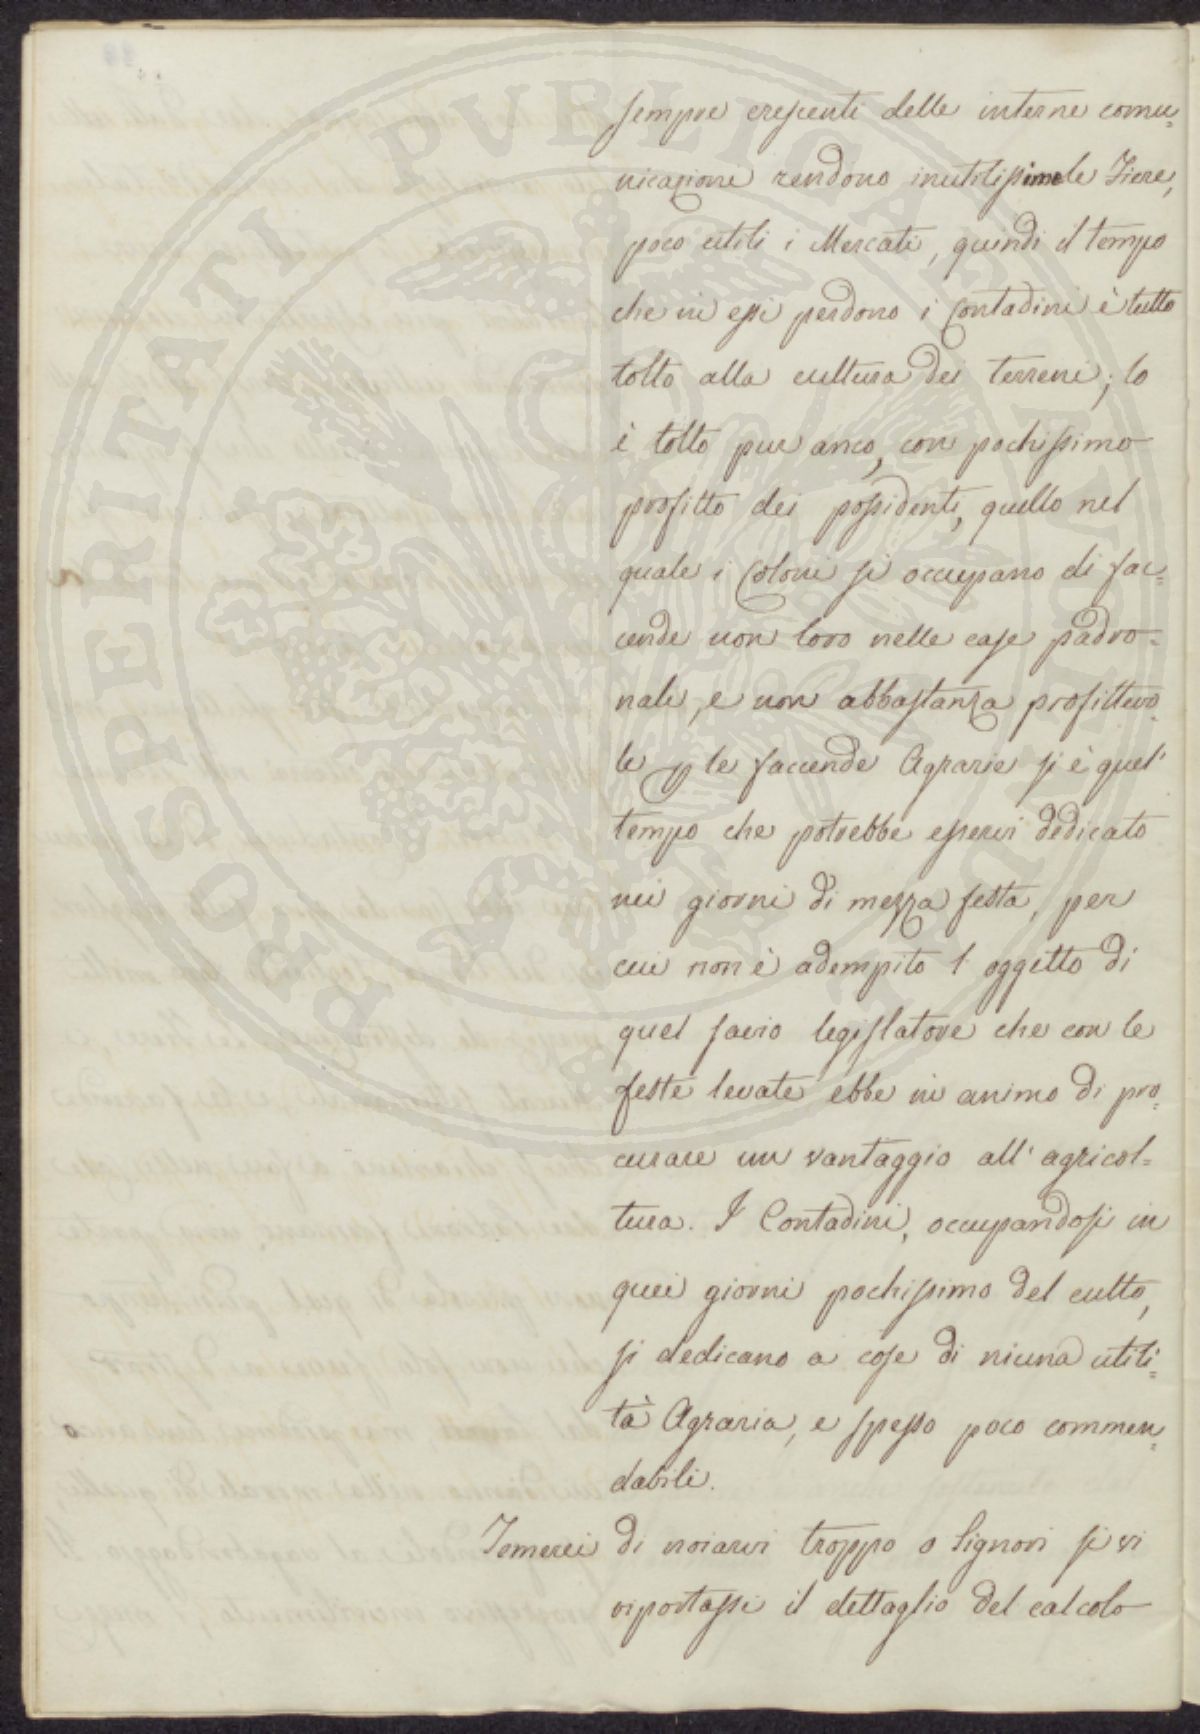 sempre crescenti delle interne comu=
nicazioni rendono inutilissime le Fiere,
poco utili i Mercati, quindi il tempo
che in essi perdono i Contadini è tutto
tolto alla cultura dei terreni; lo
è tolto pur anco, con pochissimo
profitto dei possidenti, quello nel
quale i Coloni si occupano di fac=
cende non loro nelle case padro=
nali, e non abbastanza profittevo=
le p le faccende Agrarie si è quel
tempo che potrebbe esservi dedicato
nei giorni di mezza festa, per
cui non è adempito l'oggetto di
quel savio legislatore che con le
feste levate ebbe in animo di pro=
curare un vantaggio all'agricol=
tura. I Contadini, occupandosi in
quei giorni pochissimo del culto,
si dedicano a cose di niuna utili=
tà Agraria, e spesso poco commen=
dabili.
Temerei di noiarvi troppo o Signori se vi
riportassi il dettaglio del calcolo
PROSPERITATI PUBLICAE